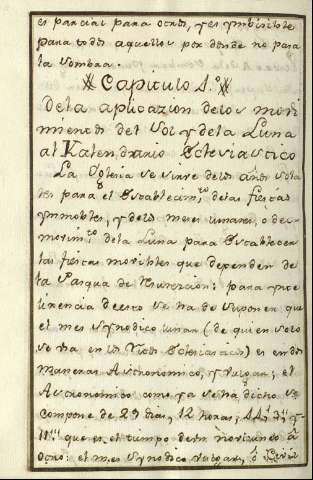 es parcial para otros, y es ymbisible
para todos aquellos por donde no pasa
la sombra.
Capitulo 4.º
De la aplicazion de los movi
mientos del Sol y de la Luna
al Kalendario Eclesiastico
La Yglesia se sirve de los años sola
res para el Establecim.to de las fiestas
ymmobles, y de los meses lunares, o de
movim.to de la Luna para Establecer
las fiestas movibles que dependen de
la Pasqua de Resurezion: para ynte
lixencia de esto se ha de suponer que
el mes Synodico lunar (de quien solo
se ha en los Eclesiasticos) es en dos
maneras Astronomico, y vulgar; el
Astronomico como ya se ha dicho se
compone de 29 dias, 12 horas, 44' 3'' y
11''' que es el tiempo de un novilunio á
otro: el mes Synodico vulgar, ó Civil